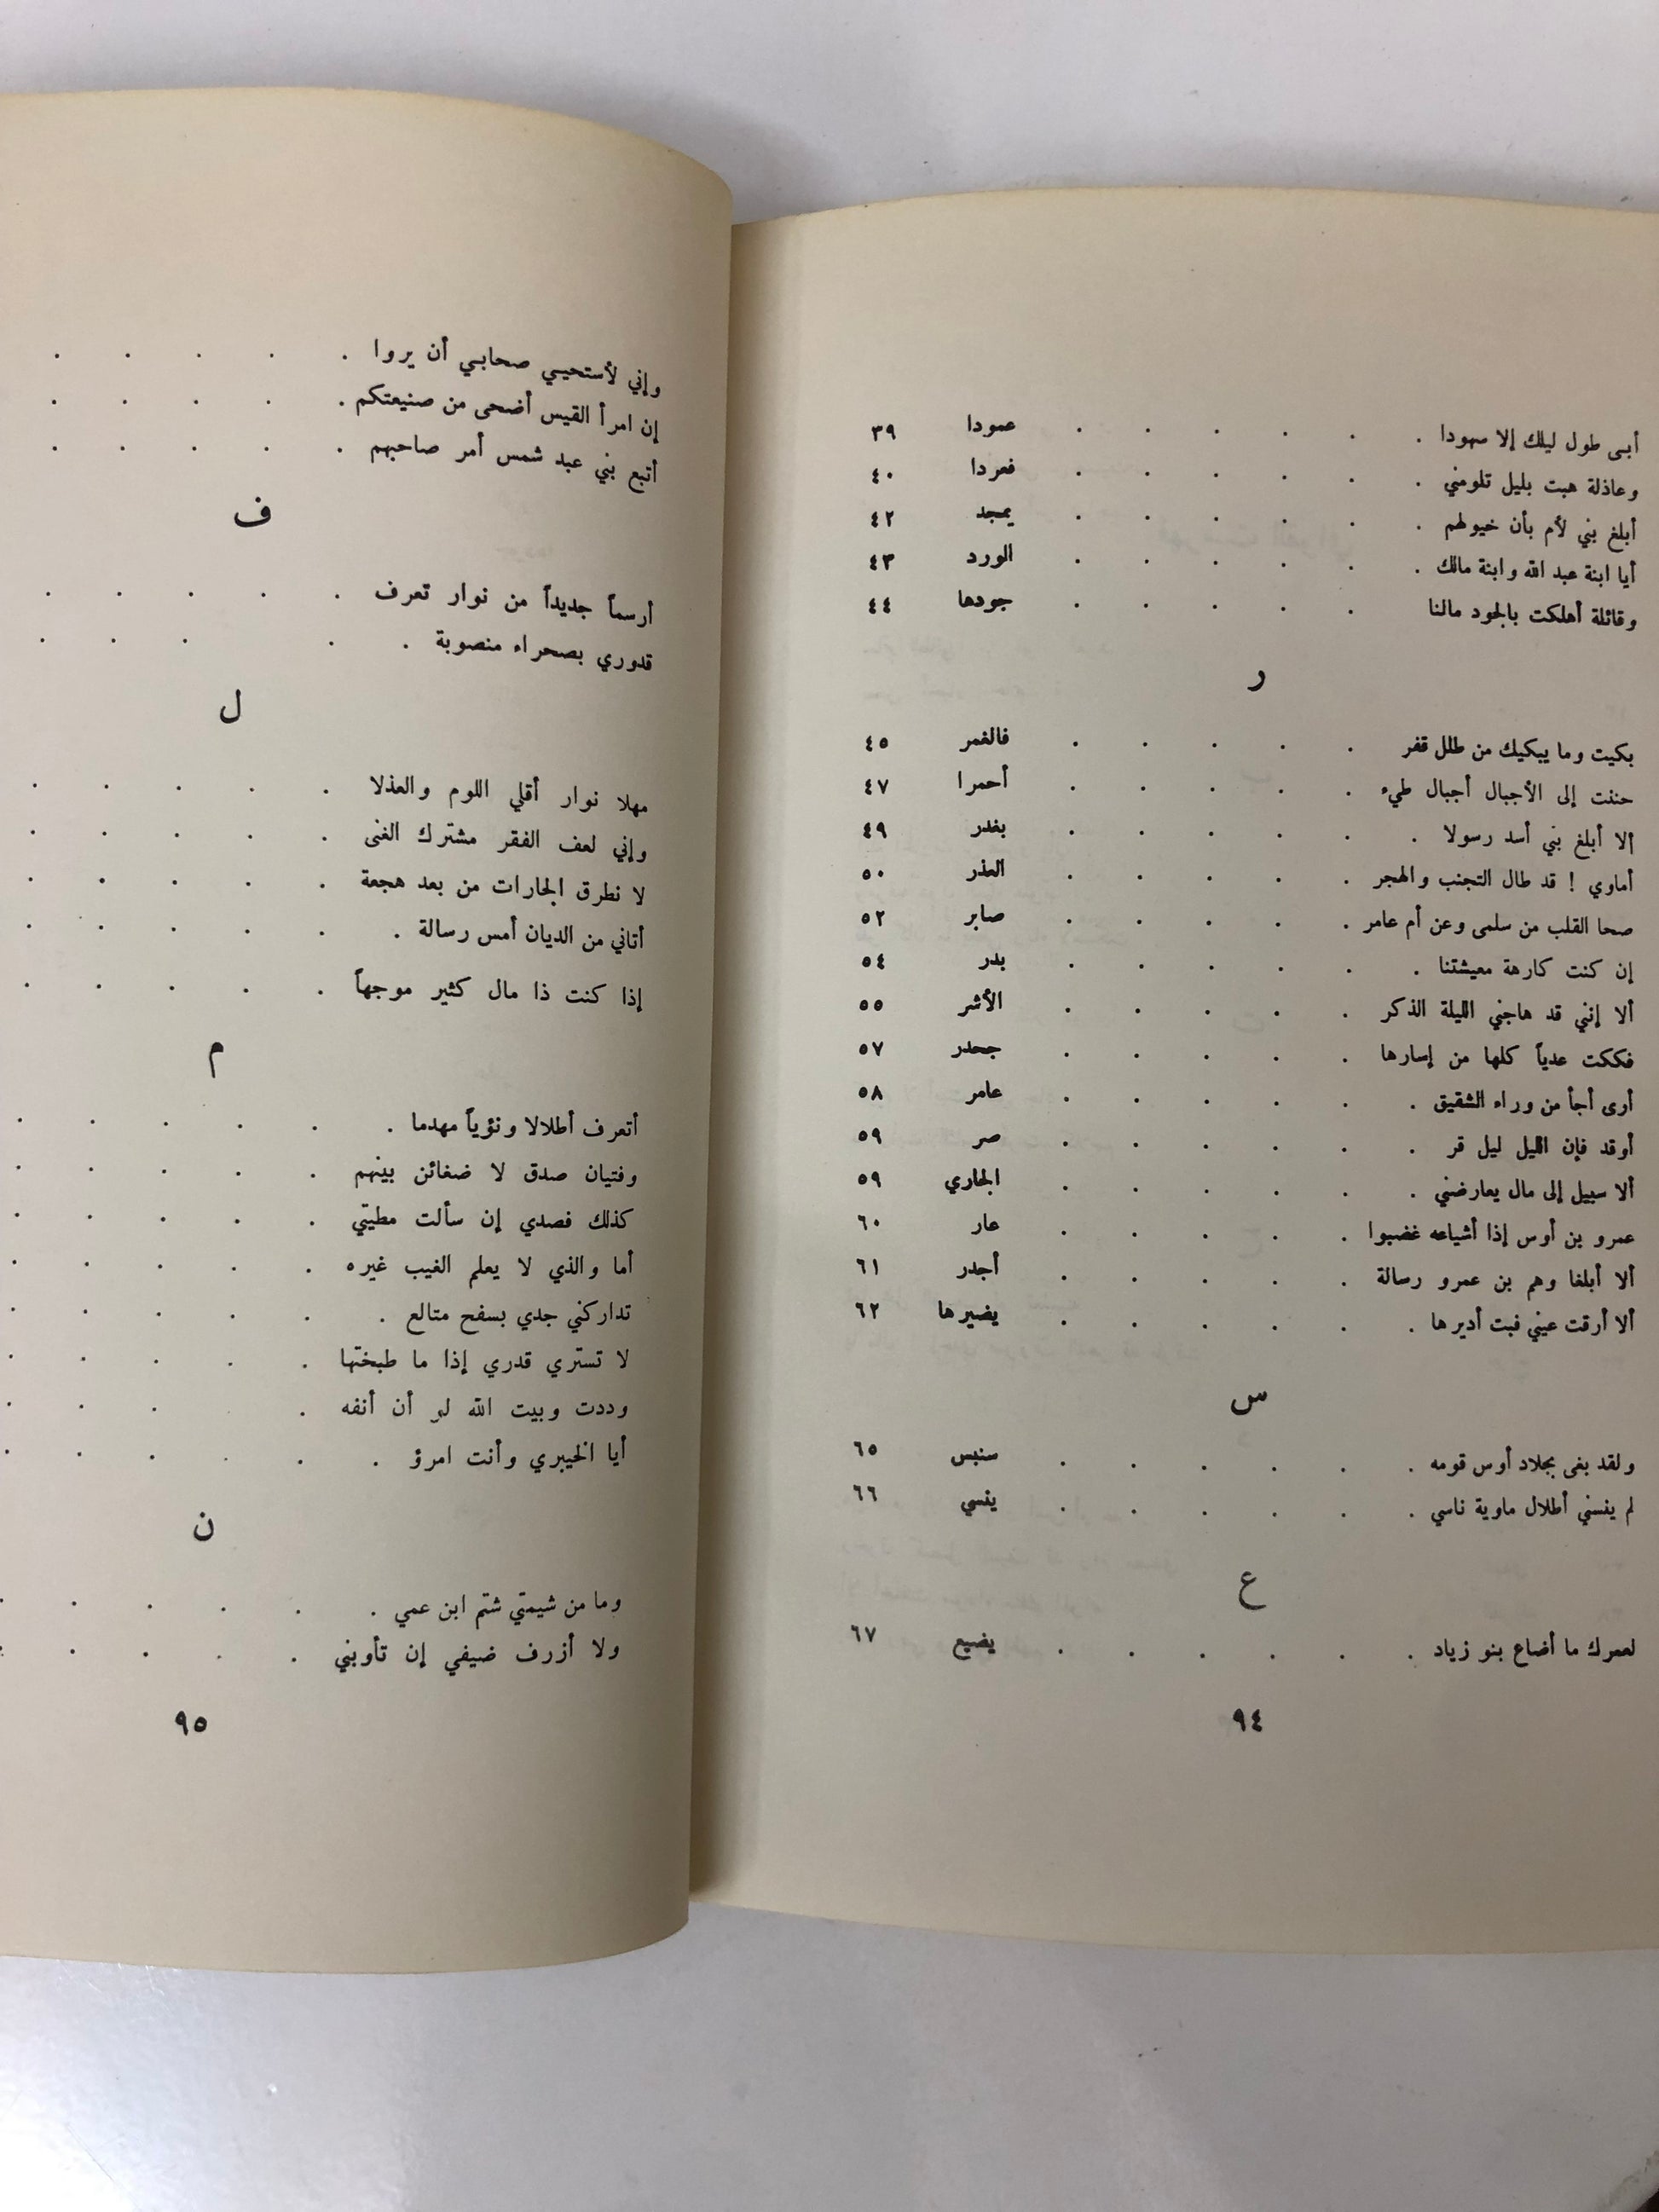 أبى طول ليلك إلا سهودا . . . . . . عمودا ٣٩
وعاذلة هبت بليل تلومني . . . . . . فعردا ٤٠
أبلغ بني لأم بأن خيولهم . . . . . . يمجد ٤٢
أيا ابنة عبد الله وابنة مالك . . . . . . الورد ٤٣
وقائلة أهلكت بالجود مالنا . . . . . جودها ٤٤
ر
بكيت وما يبكيك من طلل قفر . . . . . فالغمر ٤٥
حننت إلى الأجبال أجبال طيء . . . . . أحمرا ٤٧
ألا أبلغ بني أسد رسولا . . . . . . بغدر ٤٩
أماوي ! قد طال التجنب والهجر . . . . . العذر ٥٠
صحا القلب من سلمى وعن أم عامر . . . . . صابر ٥٢
إن كنت كارهة معيشتنا . . . . . . بدر ٥٤
ألا إنني قد هاجني الليلة الذكر . . . . . الأشر ٥٥
فككت عدياً كلها من إسارها . . . . . جحدر ٥٧
أرى أجأ من وراء الشقيق . . . . . . عامر ٥٨
أوقد فإن الليل ليل قر . . . . . . صر ٥٩
ألا سبيل إلى مال يعارضني . . . . . . الجاري ٥٩
عمرو بن أوس إذا أشياعه غضبوا . . . . . عار ٦٠
ألا أبلغا وهم بن عمرو رسالة . . . . . أجدر ٦١
ألا أرقت عيني فبت أديرها . . . . . . يضيرها ٦٢
س
ولقد بغى بجلاد أوس قومه . . . . . . سنبس ٦٥
لم ينسني أطلال ماوية ناسي . . . . . . ينسي ٦٦
ع
لعمرك ما أضاع بنو زياد . . . . . . يضيع ٦٧
٩٤
وإني لأستحيي صحابي أن يروا . . . . .
إن امرأ القيس أضحى من صنيعتكم . . . . .
أتبع بني عبد شمس أمر صاحبهم . . . . .
ف
أرسماً جديداً من نوار تعرف . . . . .
قدوري بصحراء منصوبة . . . . .
ل
مهلا نوار أقلي اللوم والعذلا . . . . .
وإني لعف الفقر مشترك الغنى . . . . .
لا نطرق الجارات من بعد هجعة . . . . .
أتاني من الديان أمس رسالة . . . . . .
إذا كنت ذا مال كثير موجهاً . . . . .
م
أتعرف أطلالا ونؤياً مهدما . . . . . .
وفتيان صدق لا ضغائن بينهم . . . . .
كذلك فصدي إن سألت مطيتي . . . . .
أما والذي لا يعلم الغيب غيره . . . . .
تداركني جدي بسفح متالع . . . . . .
لا تستري قدري إذا ما طبختها . . . . .
وددت وبيت الله لو أن أنفه . . . . .
أيا الخيبري وأنت امرؤ . . . . . .
ن
وما من شيمتي شتم ابن عمي . . . . . .
ولا أزرف ضيفي إن تأوبني . . . . .
٩٥